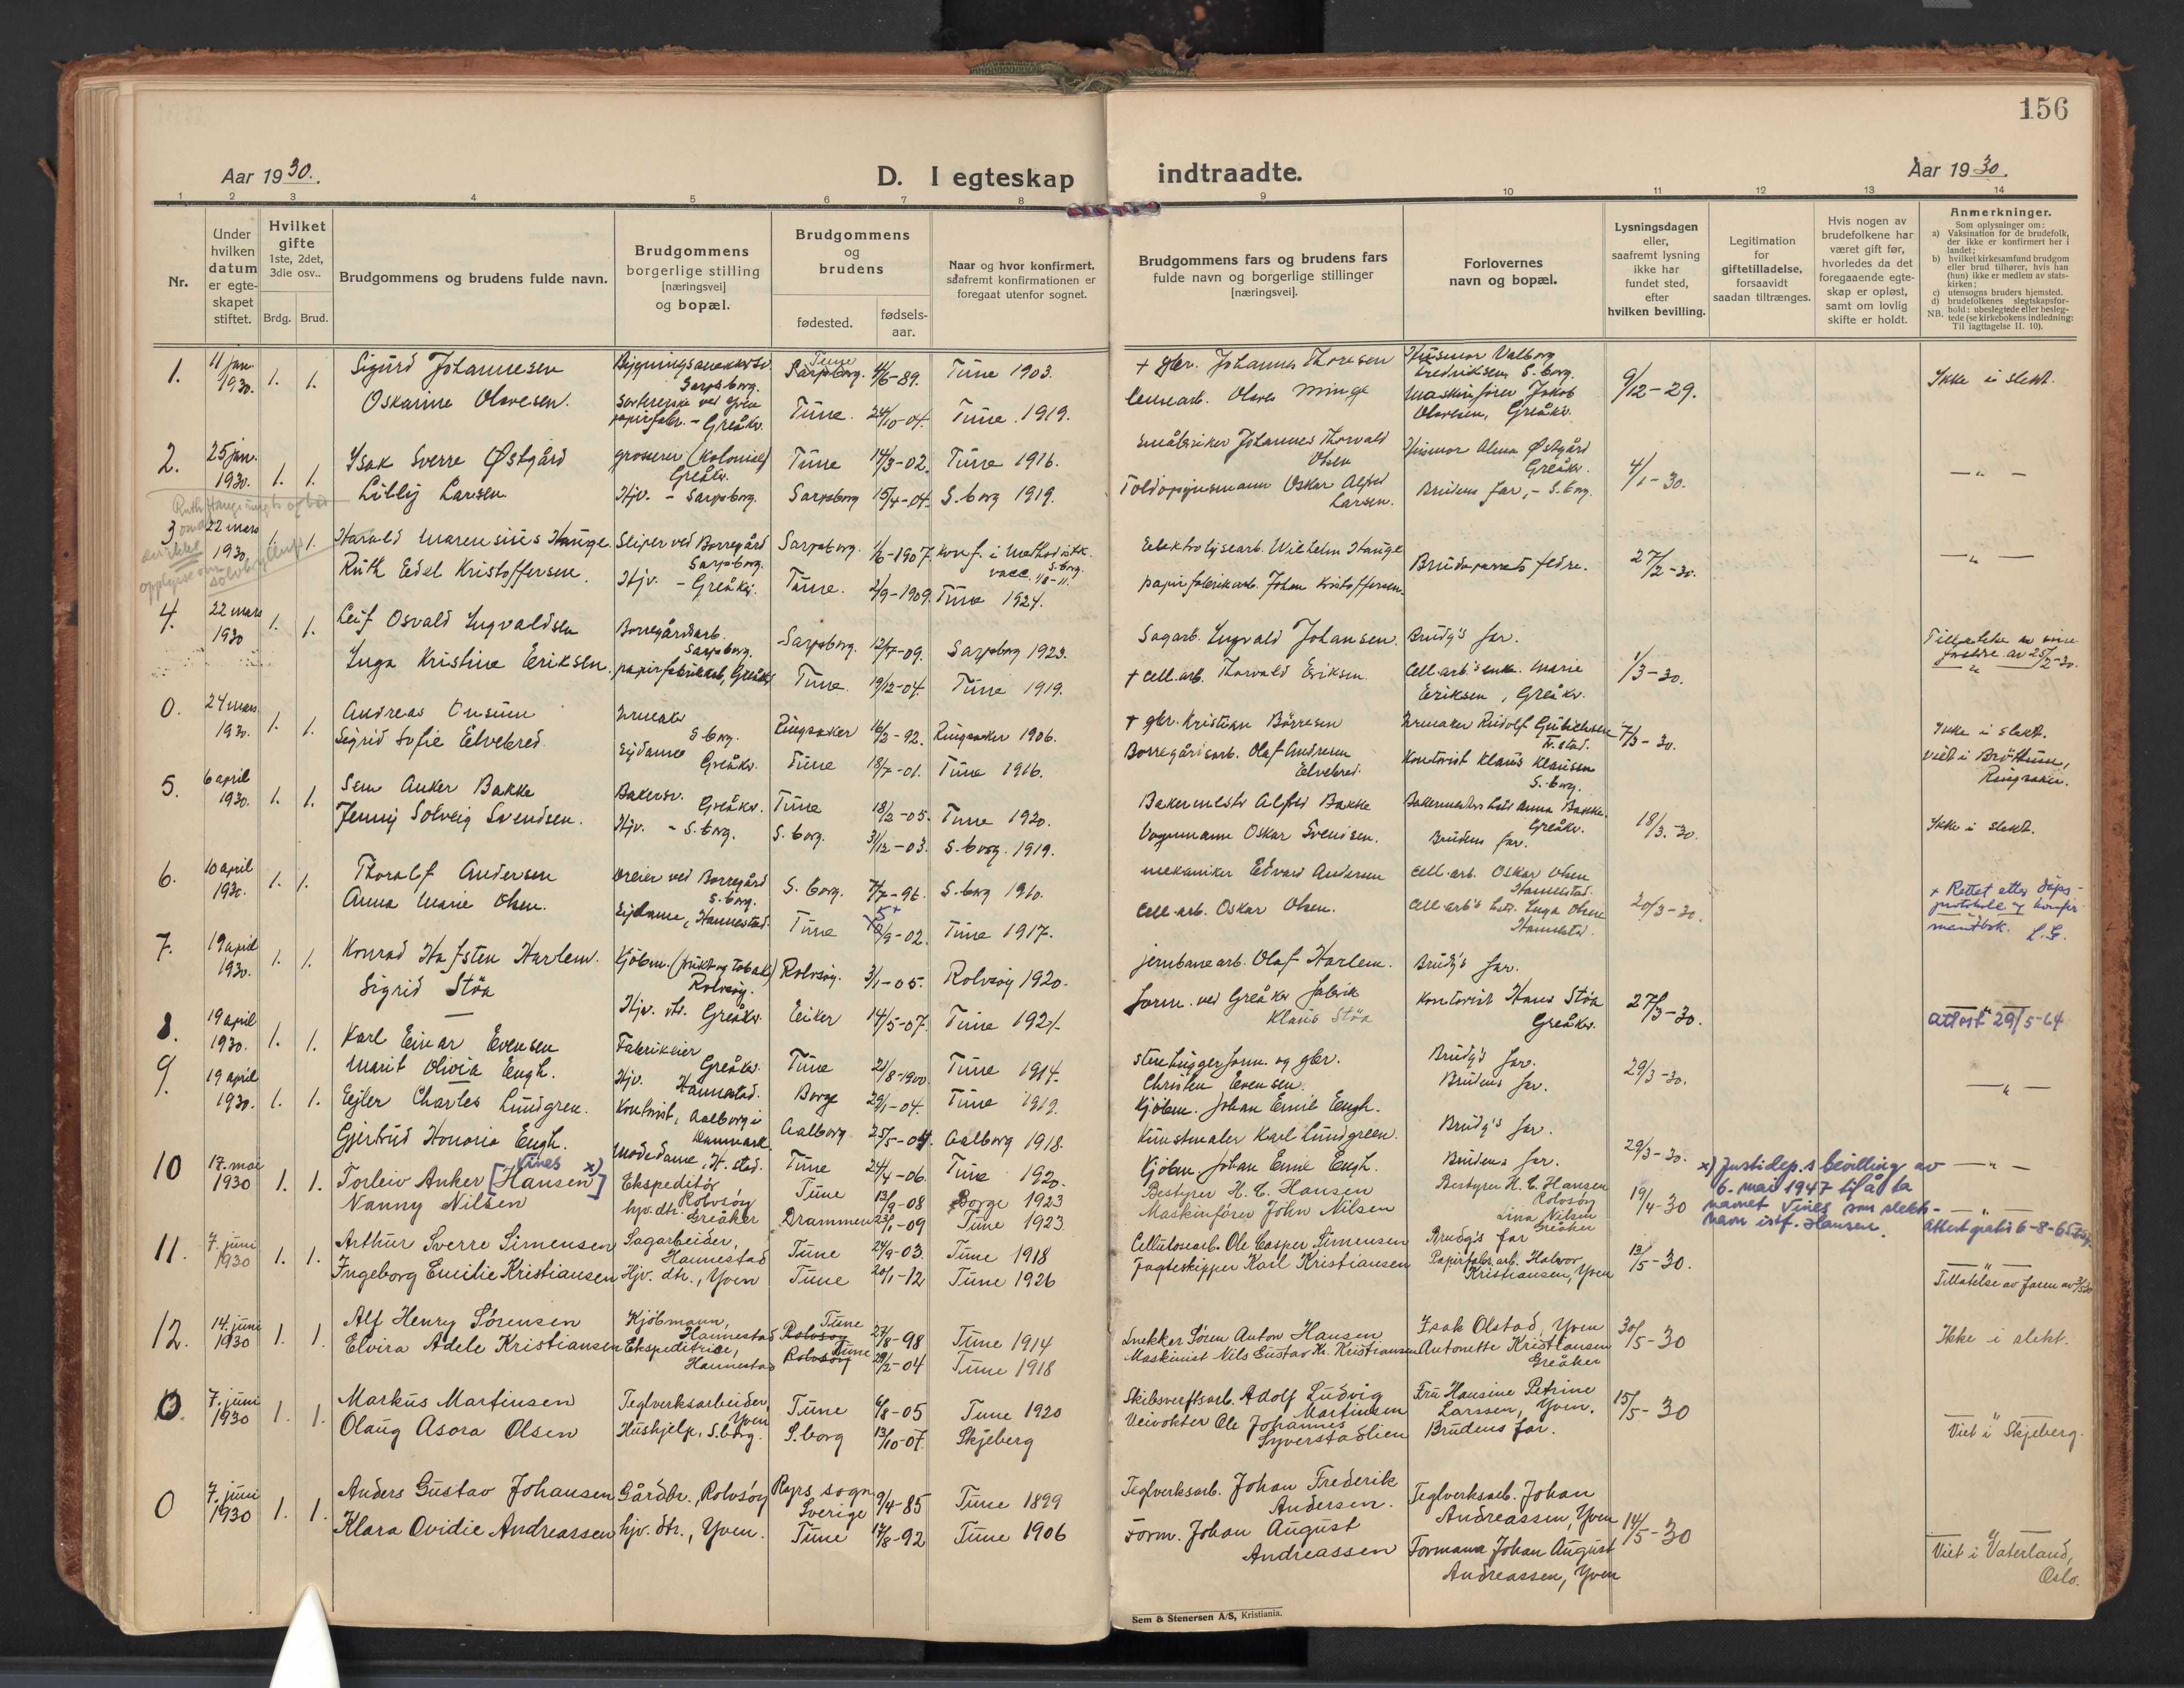 156
Aar 1930.
D. I egteskap indtraadte.
Aar 1930.
1 2 3 4 5 6 7 8 9 10 11 12 13 14
Nr.
Under hvilken datum er egte-skapet stiftet.
Hvilket gifte 1ste, 2det, 3die osv..
Brdg. Brud.
Brudgommens og brudens fulde navn.
Brudgommens borgerlige stilling [næringsvei] og bopæl.
Brudgommens og brudens
fødested.
fødsels-aar.
Naar og hvor konfirmert, saafremt konfirmationen er foregaat utenfor sognet.
Brudgommens fars og brudens fars fulde navn og borgerlige stillinger [næringsvei].
Forlovernes navn og bopæl.
Lysningsdagen eller, saafremt lysning ikke har fundet sted, efter hvilken bevilling.
Legitimation for giftetilladelse, forsaavidt saadan tiltrænges.
Hvis nogen av brudefolkene har været gift før, hvorledes da det foregaaende egte-skap er opløst, samt om lovlig skifte er holdt.
Anmerkninger.
Som oplysninger om:
a) Vaksination for de brudefolk, der ikke er konfirmert her i landet;
b) hvilket kirkesamfund brudgom eller brud tilhører, hvis han (hun) ikke er medlem av stats-kirken;
c) utensogns bruders hjemsted.
d) brudefolkenes slegtskapsfor-hold: ubeslegtede eller besleg-tede (se kirkebokens indledning: Til iagttagelse II. 10).
NB.
1. 11 jan. 1930. 1. 1. Sigurd Johannesen Sarpsborg. Tune Sarpsborg. 4/6-89. Tune 1903. + gbr. Johannes Thoresen Husmor Valborg Fredriksen S.borg. 9/12-29. Ikke i slekt.
Oskarine Olavesen. papirfabr. - Greåkr. Tune. 24/10-04. Tune. 1919. lensearb. Olaves Minge Maskinfører Jakob Olavesen, Greåkr.
2. 25 jan. 1930. 1. 1. Isak Sverre Østgård grosserer (kolonial) Greåkr. Tune 14/3-02. Tune 1916. Småbruker Johannes Thorvald Olsen Husmor Alma Østgård Greåkr. 4/1-30. — " —
Lilly Larsen Hjv. - Sarpsborg. Sarpsborg 15/4-04. S.borg 1919. Toldopsynsmann Oskar Alfred Larsen. Brudens far, - S.borg.
3 22 mars 1930, 1. 1. Harald Marensius Hauge. Sliper ved Borregård Sarpsborg. Sarpsborg. 1/6-1907. Konf. i Methodistk. S.borg. vacc. 1/8-11. Elektrolysearb. Wilhelm Hauge Brudeparrets fedre. 27/2-30. — " —
Ruth Edel Kristoffersen. Hjv. - Greåkr. Tune. 2/9-1909. Tune 1924. papirfabrikarb. Johan Kristoffersen.
4. 22 mars 1930 1. 1. Leif Osvald Ingvaldsen Borregårdsarb. Sarpsborg. Sarpsborg. 12/7-09. Sarpsborg 1923. Sagarb. Ingvald Johansen. Brudg's far. 1/3-30.
Inga Kristine Eriksen. papirfabrikarb, Greåkr Tune. 19/12-04. Tune 1919. + cell.arb. Thorvald Eriksen Cell.arb's enke. Marie Eriksen, Greåkr.
0. 24 mars 1930. 1. 1. Andreas Onsum S.borg. Ringsaker 16/2-92. Ringsaker 1906. + gbr. Kristian Børresen Fr.stad. 7/3-30. Ikke i slekt.
Sigrid Sofie Elvebred. Sydame Greåkr. Tune 18/7-01. Tune 1916. Borregårdsarb. Olaf Andresen Elvebred. Kontorist Klaus Klausen S.borg. Viet i Brøttum, Ringsaker.
5. 6 april 1930. 1. 1. Sem Anker Bakke Bakersv. Greåkr. Tune 18/2-05. Tune 1920. Bakermester Alfred Bakke Bakermesters hustru Anna Bakke. Greåkr. 18/3-30. Ikke i slekt.
Jenny Solveig Svendsen. Hjv. - S.borg. S.borg. 31/12-03. S.borg. 1919. Vognmann Oskar Svendsen. Brudens far.
6. 10 april 1930. 1. 1. Thoralf Andersen Dreier ved Borregård S.borg. S.borg. 7/7-96. S.borg 1910. mekaniker Edvard Andersen Cell.arb. Oskar Olsen Hannestad. 20/3-30. + Rettet etter dåps-protokoll og konfir-mantbok. L.G.
Anna Marie Olsen. Sydame, Hannestad. Tune 5+ /9-02. Tune 1917. Cell.arb. Oskar Olsen. Cell.arb's hstr. Inga Olsen Hannestad.
7. 19 april 1930. 1. 1. Konrad Hafsten Harlem. Kjøbm. (frukt og tobak) Rolvsøy. Rolvsøy. 3/1-05. Rolvsøy 1920. jernbanearb. Olaf Harlem. Brudg's far. 27/3-30. — " —
Sigrid Støa Hjv. dtr. Greåkr. Eiker 14/5-07. Tune 1921. form. ved Greåkr fabrik Klaus Støa kontorist Hans Støa Greåkr. attest 29/5-64
8. 19 april 1930. 1. 1. Karl Einar Evensen Fabrikeier Greåkr. Tune 21/8-1900. Tune 1914. Stenhuggerform. og gbr. Christen Evensen. Brudg's far. 29/3-30. — " —
Marit Olivia Engh. Hjv. Hannestad. Borge 29/1-04. Tune 1919. Kjøbm. Johan Emil Engh. Brudens far.
9. 19 april 1930. 1. 1. Ejler Charles Lundgren. Kontorist, Aalborg i Danmark Aalborg 25/5-04. Aalborg 1918. Kunstmaler Karl Lundgreen. Brudg's far. 29/3-30. — " —
Gjertrud Honoria Engh. Modedame, H.stad. Tune 24/4-06. Tune 1920. Kjøbm. Johan Emil Engh. Brudens far.
10 17. mai 1930 1. 1. Torleiv Anker [Hansen] Vines x) Ekspeditør Rolvsøy Tune 13/9-08 Borge 1923 Bestyrer H. C. Hansen Bestyrer H. C. Hansen Rolvsøy 19/4-30 — " —
Nanny Nilsen hjv. dtr. Greåker Drammen 23/1-09 Tune 1923 Maskinfører John Nilsen Lina Nilsen Greåker Attest gratis 6-8-65
x) Justisdep.s bevilling av 6. mai 1947 til å ta navnet Vines som slekts-navn istf. Hansen.
11. 7. juni 1930 1. 1. Arthur Sverre Simensen Sagarbeider, Hannestad Tune 24/9-03. Tune 1918 Cellulosearb. Ole Casper Simensen Brudg's far 13/5-30. — " —
Ingeborg Emilie Kristiansen Hjv. dtr., Yven Tune 20/1-12 Tune 1926 Jagteskipper Karl Kristiansen Papirfabr.arb. Halvor Kristiansen, Yven Tillatelse av faren av
12. 14. juni 1930 1. 1. Alf Henry Sørensen Kjøbmann, Hannestad Tune Rolvsøy 27/8-98 Tune 1914 Snekker Søren Anton Hansen Isak Olstad, Yven 30/5-30 Ikke i slekt.
Elvira Adele Kristiansen Ekspeditrice, Hannestad Tune Rolvsøy 29/2-04 Tune 1918 Maskinist Nils Gustav Kr. Kristiansen Antonette Kristiansen Greåker
13. 7. juni 1930 1. 1. Markus Martinsen Teglverksarbeider, Yven Tune 6/8-05 Tune 1920 Skibsverftsarb. Adolf Ludvig Martinsen Fru Hansine Petrine Larssen, Yven. 15/5-30 — " —
Olaug Asora Olsen Hushjelp. S.borg. S.borg 13/10-07. Skjeberg Veivokter Ole Johannes Syverstadlien Brudens far. Viet i Skjeberg.
0 7. juni 1930 1. 1. Anders Gustav Johansen Gårdbr., Rolvsøy sogn Sverige 9/4-85 Tune 1899 Teglverksarb. Johan Frederik Andersen. Teglverksarb. Johan Andreassen, Yven 14/5-30 — " —
Klara Ovidie Andreassen hjv. dtr., Yven. Tune 17/8-92 Tune 1906 Form. Johan August Andreassen Formann Johan August Andreassen, Yven Viet i Vaterland, Oslo.
Sem & Stenersen A/S, Kristiania.